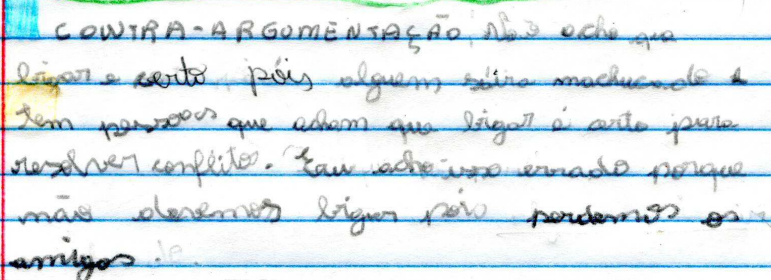 CONTRA-ARGUMENTAÇÃO Não acho que
brigar e certo pois alguem saira machucado e
tem pessoas que acham que brigar é certo para
resolver conflitos. Eu acho isso errado porque
não devemos brigar pois perdemos os
amigos